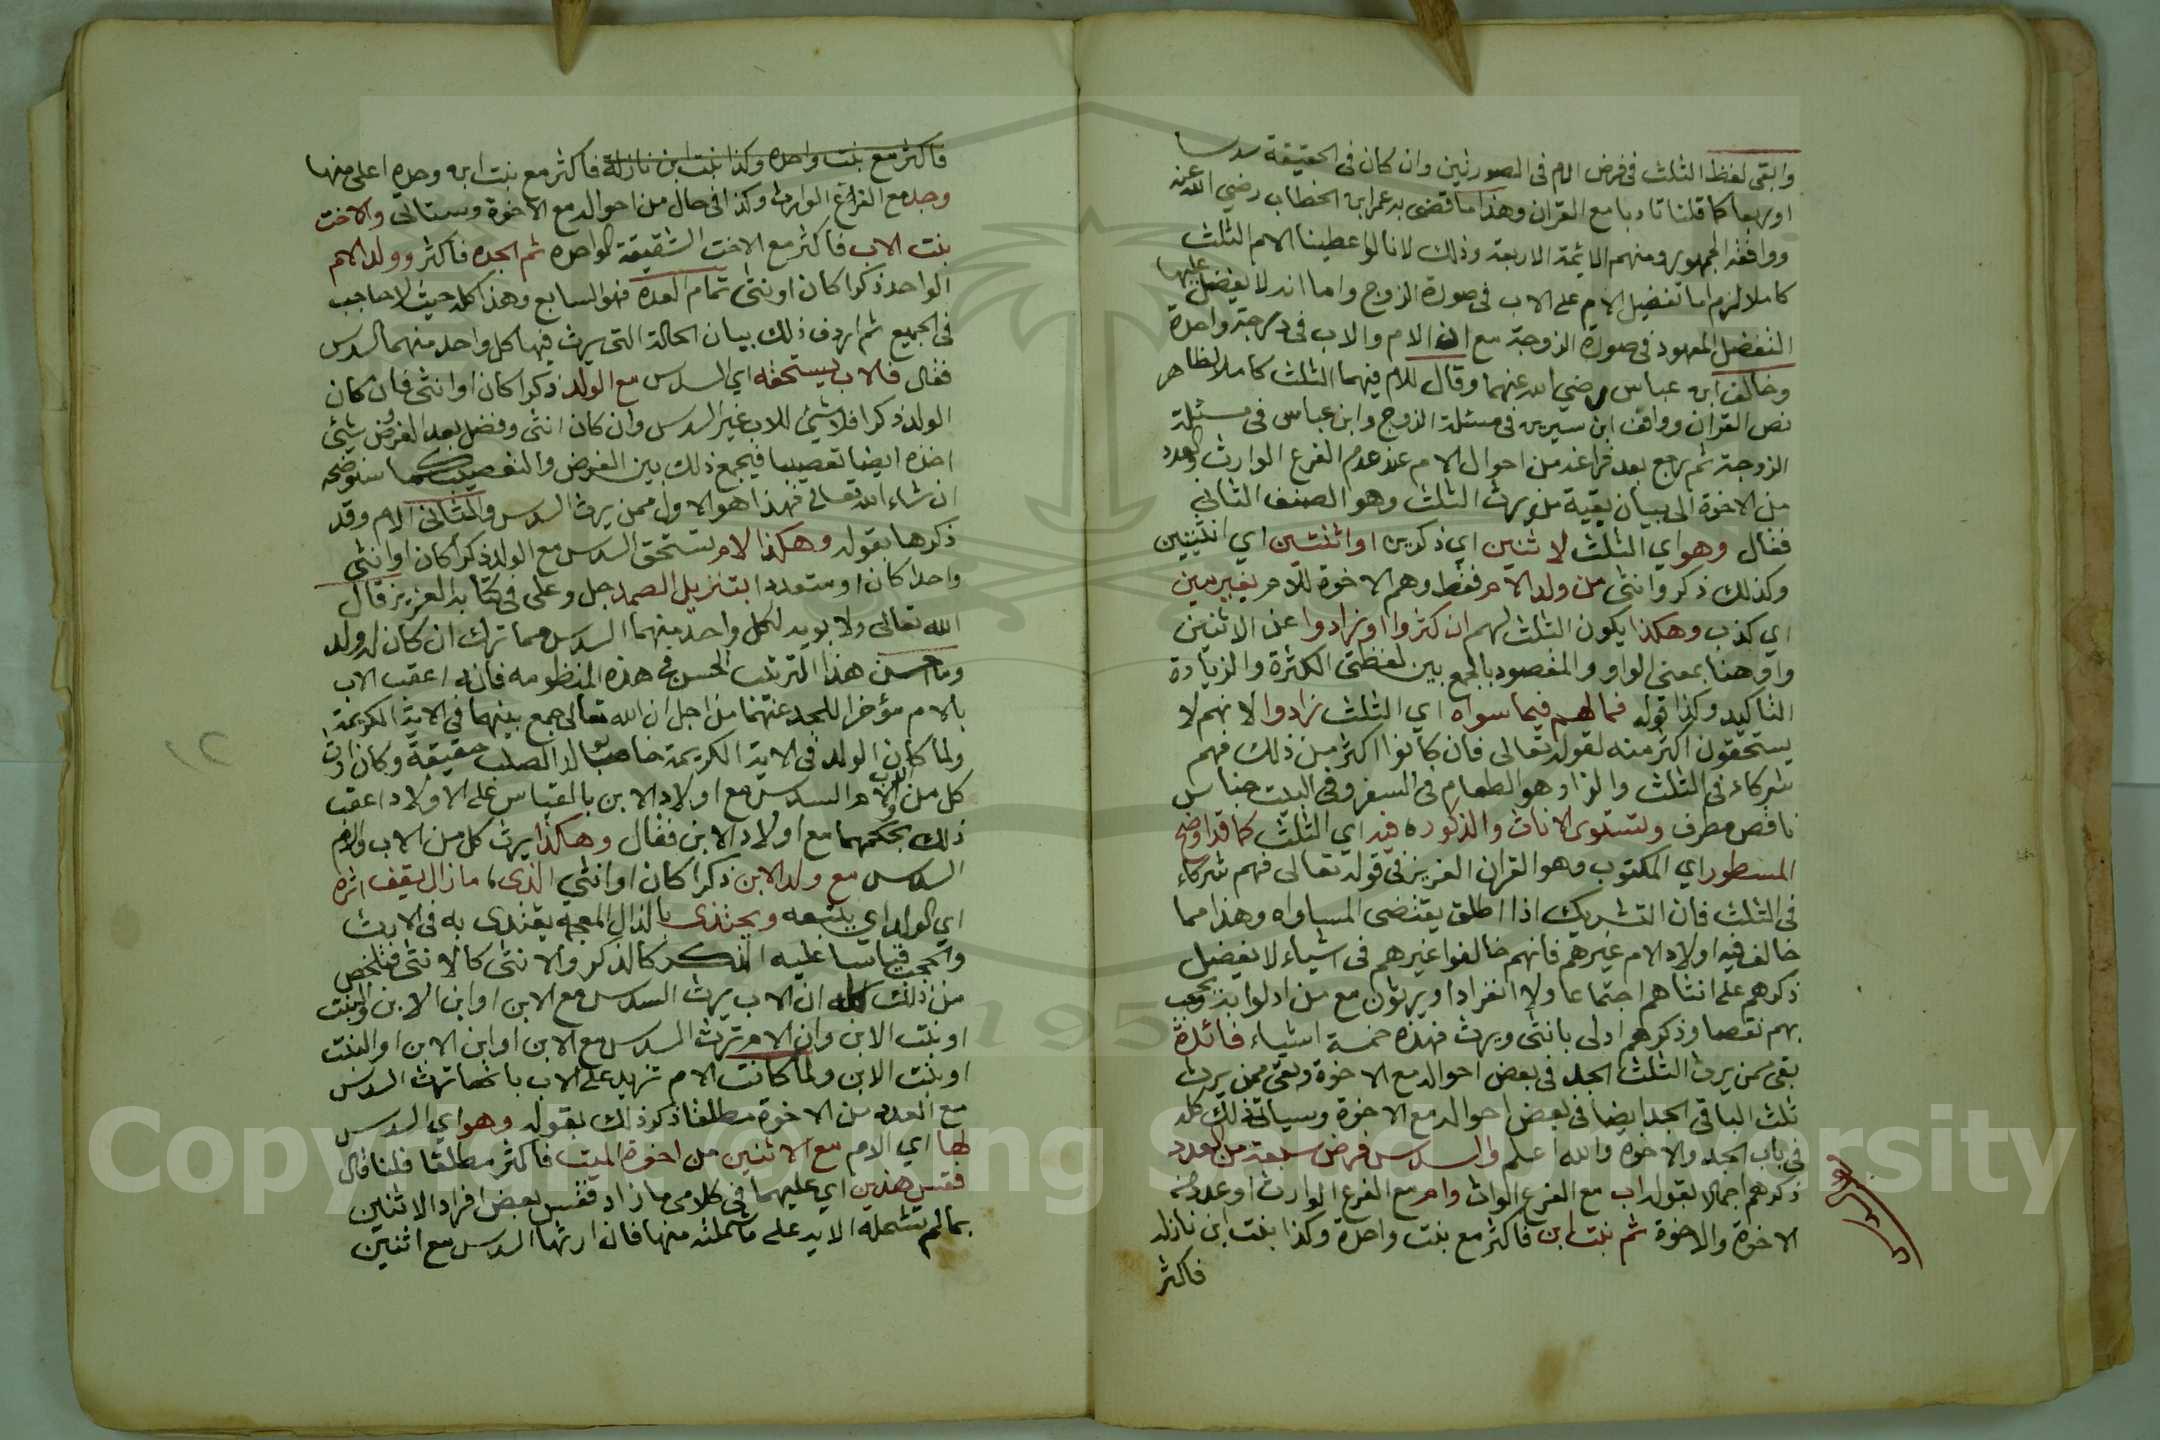 وابقى لفظ الثلث في فرض الام في الصورتين وان كان في الحقيقة سدسا
او ربعا كما قلنا تادبا مع القران وهذا ما قضى به عمر ابن الخطاب رضي الله عنه
ووافقه الجمهور ومنهم الايمة الاربعة وذلك لانا لو اعطينا الام الثلث
كاملا لزم اما تفضيل الام على الاب في صورة الزوج واما انه لا يفضل عليها
التفضيل المعهود في صورة الزوجة مع ان الام والاب في درجة واحدة
وخالف ابن عباس رضي الله عنهما وقال للام فيهما الثلث كاملا لظاهر
نص القران ووافق ابن سيرين في مسئلة الزوج وابن عباس في مسئلة
الزوجة ثم رجع بعد فراغه من احوال الام عند عدم الفرع الوارث والعدد
من الاخوة الى بيان بقية من يرث الثلث وهو الصنف الثاني
فقال وهو اي الثلث لاثنين اي ذكرين او اثنتين اي انثيين
وكذلك ذكر وانثى من ولد الام فقط وهم الاخوة للام بغير مين
اي كذب وهكذا يكون الثلث لهم ان كثروا او زادوا عن الاثنين
واو هنا بمعنى الواو والمقصود بالجمع بين لفظتى الكثرة والزيادة
التاكيد وكذا قوله فمالهم فيما سواه اي الثلث زادوا لانهم لا
يستحقون اكثر منه لقوله تعالى فان كانوا اكثر من ذلك فهم
شركاء في الثلث والزاد هو الطعام في السفر وفي البيت جناس
ناقص مطرف وتستوى الاناث والذكوره فيه اي الثلث كما قد اوضح
المسطور اي المكتوب وهو القران العزيز في قوله تعالى فهم شركاء
في الثلث فان التشريك اذا اطلق يقتضى المساواه وهذا مما
خالف فيه اولاد الام غيرهم فانهم خالفوا غيرهم في اشياء لا يفضل
ذكرهم على انثاهم اجتماعا ولا انفرادا ويرثون مع من ادلوا به ويحجب
بهم نقصا وذكرهم ادلى بانثى ويرث فهذه خمسة اشياء فائدة
بقى ممن يرث الثلث الجد في بعض احواله مع الاخوة وبقى ممن يرث
ثلث الباقى الجد ايضا في بعض احواله مع الاخوة وسياتي ذلك كله
في باب الجد والاخوه والله اعلم والسدس فرض سبعة من العدد
ذكرهم اجمالا بقوله اب مع الفرع الوارث وام مع الفرع الوارث او عدد من
الاخوة والاخوة ثم بنت ابن فاكثر مع بنت واحدة وكذا بنت ابن نازله
فاكثر
فاكثر مع بنت واحده وكذا بنت ابن نازلة فاكثر مع بنت ابن وحده اعلى منها
وجد مع الفرع الوارث وكذا في حال من احواله مع الاخوة وسياتى والاخت
بنت الاب فاكثر مع الاخت الشقيقة الواحده ثم الجده فاكثر وولد الام
الواحد ذكرا كان او نثى تمام العده فهو السابع وهذا كله حيث لا حاجب
في الجميع ثم اردف ذلك ببيان الحالة التى يرث فيها كل واحد منهم السدس
فقال فالاب يستحقه اي السدس مع الولد ذكرا كان او انثى فان كان
الولد ذكرا فلا شيئ للاب غير السدس وان كان انثى وفضل بعد الفروض شيئ
اخذه ايضا تعصيبا فيجمع ذلك بين الفرض والتعصيب كما سنوضحه
ان شاء الله تعالى فهذا هو الاول ممن يرث السدس والثاني الام وقد
ذكرها بقوله وهكذا الام تستحق السدس مع الولد ذكرا كان او انثى
واحدا كان او متعددا بتنزيل الصمد جل وعلى في كتابه العزيز قال
الله تعالى ولابويه لكل واحد منهما السدس مما ترك ان كان له ولد
وما احسن هذا الترتيب الحسن في هذه المنظومه فانه اعقب الاب
بالام مؤخرا للجد عنهما من اجل ان الله تعالى جمع بينهما في الاية الكريمة
ولما كان الولد في الاية الكريمة خاصا بولد الصلب حقيقة وكان ارث
كل من الاب والام السدس مع اولاد الابن بالقياس على الاولاد اعقب
ذلك بحكمهما مع اولاد الابن فقال وهكذا يرث كل من الاب والام
السدس مع ولد الابن ذكرا كان او انثي الذى ما زال يقف اثره
اي الولد اي يتبعه ويحتذى بالذال المعجمه يقتدى به في الارث
والحجب قياسا عليه الذكر كالذكر والانثى كالانثى فتلخص
من ذلك كله ان الاب يرث السدس مع الابن او ابن الابن والبنت
او بنت الابن وان الام ترث السدس مع الابن او ابن الابن او البنت
او بنت الابن ولما كانت الام تزيد على الاب بانها ترث السدس
مع العدد من الاخوة مطلقا ذكر ذلك بقوله وهو اي السدس
لها اي الام مع الاثنين من اخوة الميت فاكثر مطلقا قلنا قال
فقس هذين اي عليهما في كلامى ما زاد فقس بعض افراد الاثنين
بما لم تشمله الايه على ما شملته منها فان ارثها السدس مع اثنين